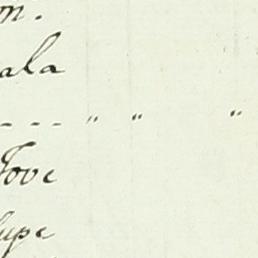 on.
ala
--- " " "
Jove
lupe